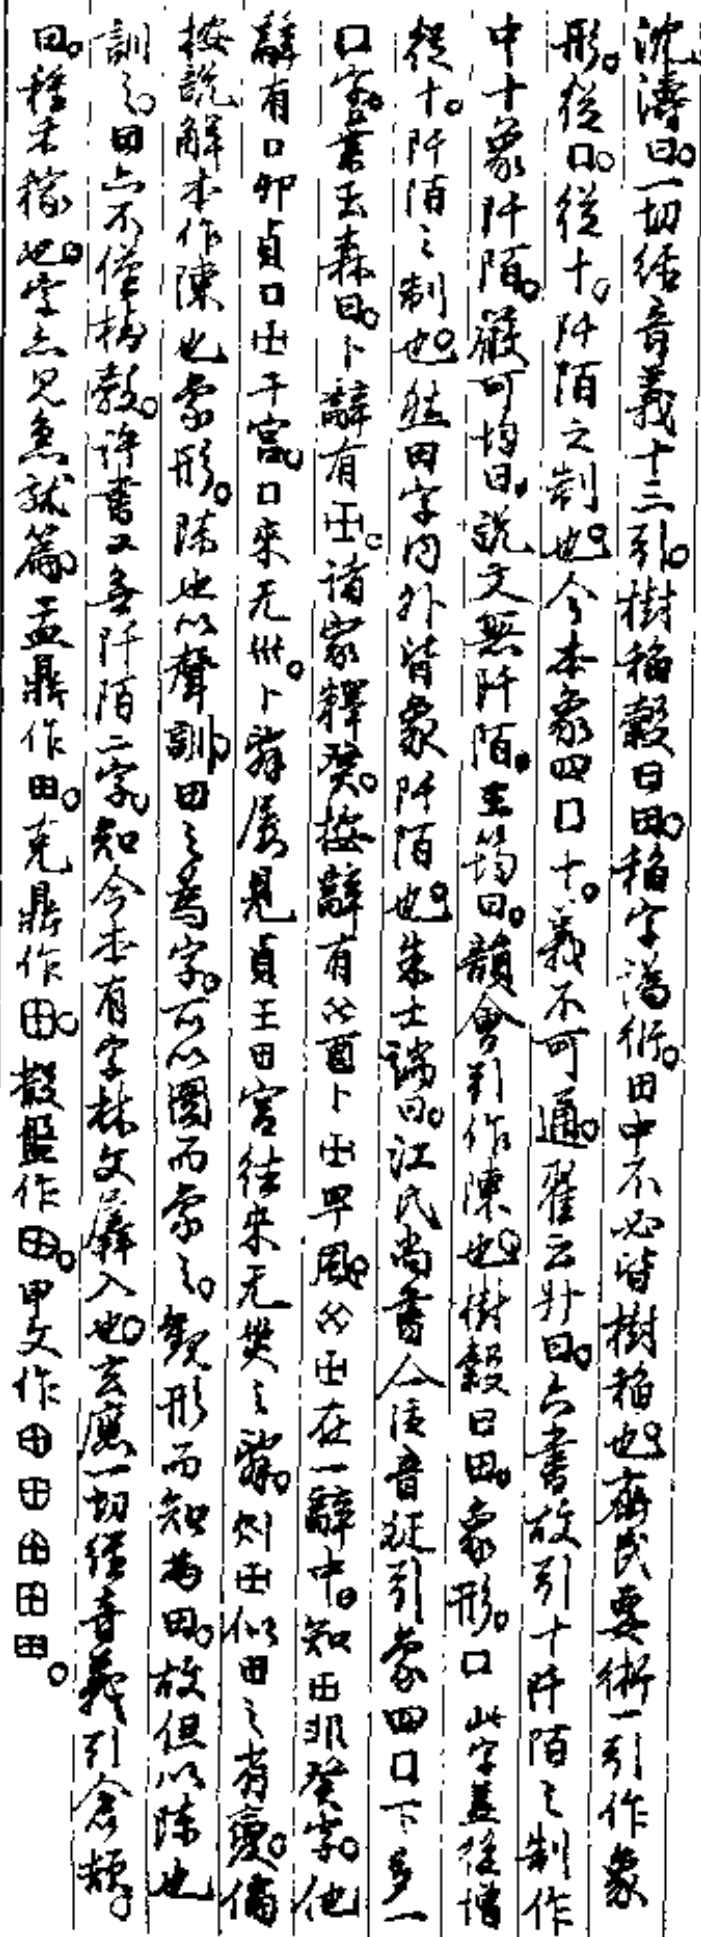 沈濤曰。一切经音義十三引。樹稻穀曰田。稻字譌衍。田中不必皆樹稻也。齊民要術一引作象
形。從口。從十。阡陌之制也。今本象四口十。義不可通。翟云升曰。六書故引十阡陌之制作
中十象阡陌。嚴可均曰。説文無阡陌。王筠曰。韻會引作陳也。樹穀曰田。象形。口此字蓋後增
從十。阡陌之制也。然田字内外皆象阡陌也。朱士端曰。江氏尚書人注音疏引象四口下多一
口字。葉玉森曰。卜辭有𤰔。諸家釋癸。按辭有癸酉卜𤰔甲風。癸𤰔在一辭中。知田非癸字。他
辭有口卯貞口𤰔于宫。口來无𡿧。卜辭屢見貞王田宫往來无𡿧之辭。則𤰔似田之省變。倄
按説解本作陳也。象形。陳也以聲訓。田之爲字。可以圖而象之。觀形而知爲田。故但以陳也
訓之。田亦不僅樹穀。許書又無阡陌二字。知今本有字林文羼入也。玄應一切經音義引倉頡。
田。種禾稼也。字亦見急就篇。盂鼎作田。克鼎作田。散盤作田。甲文作田田田田田。